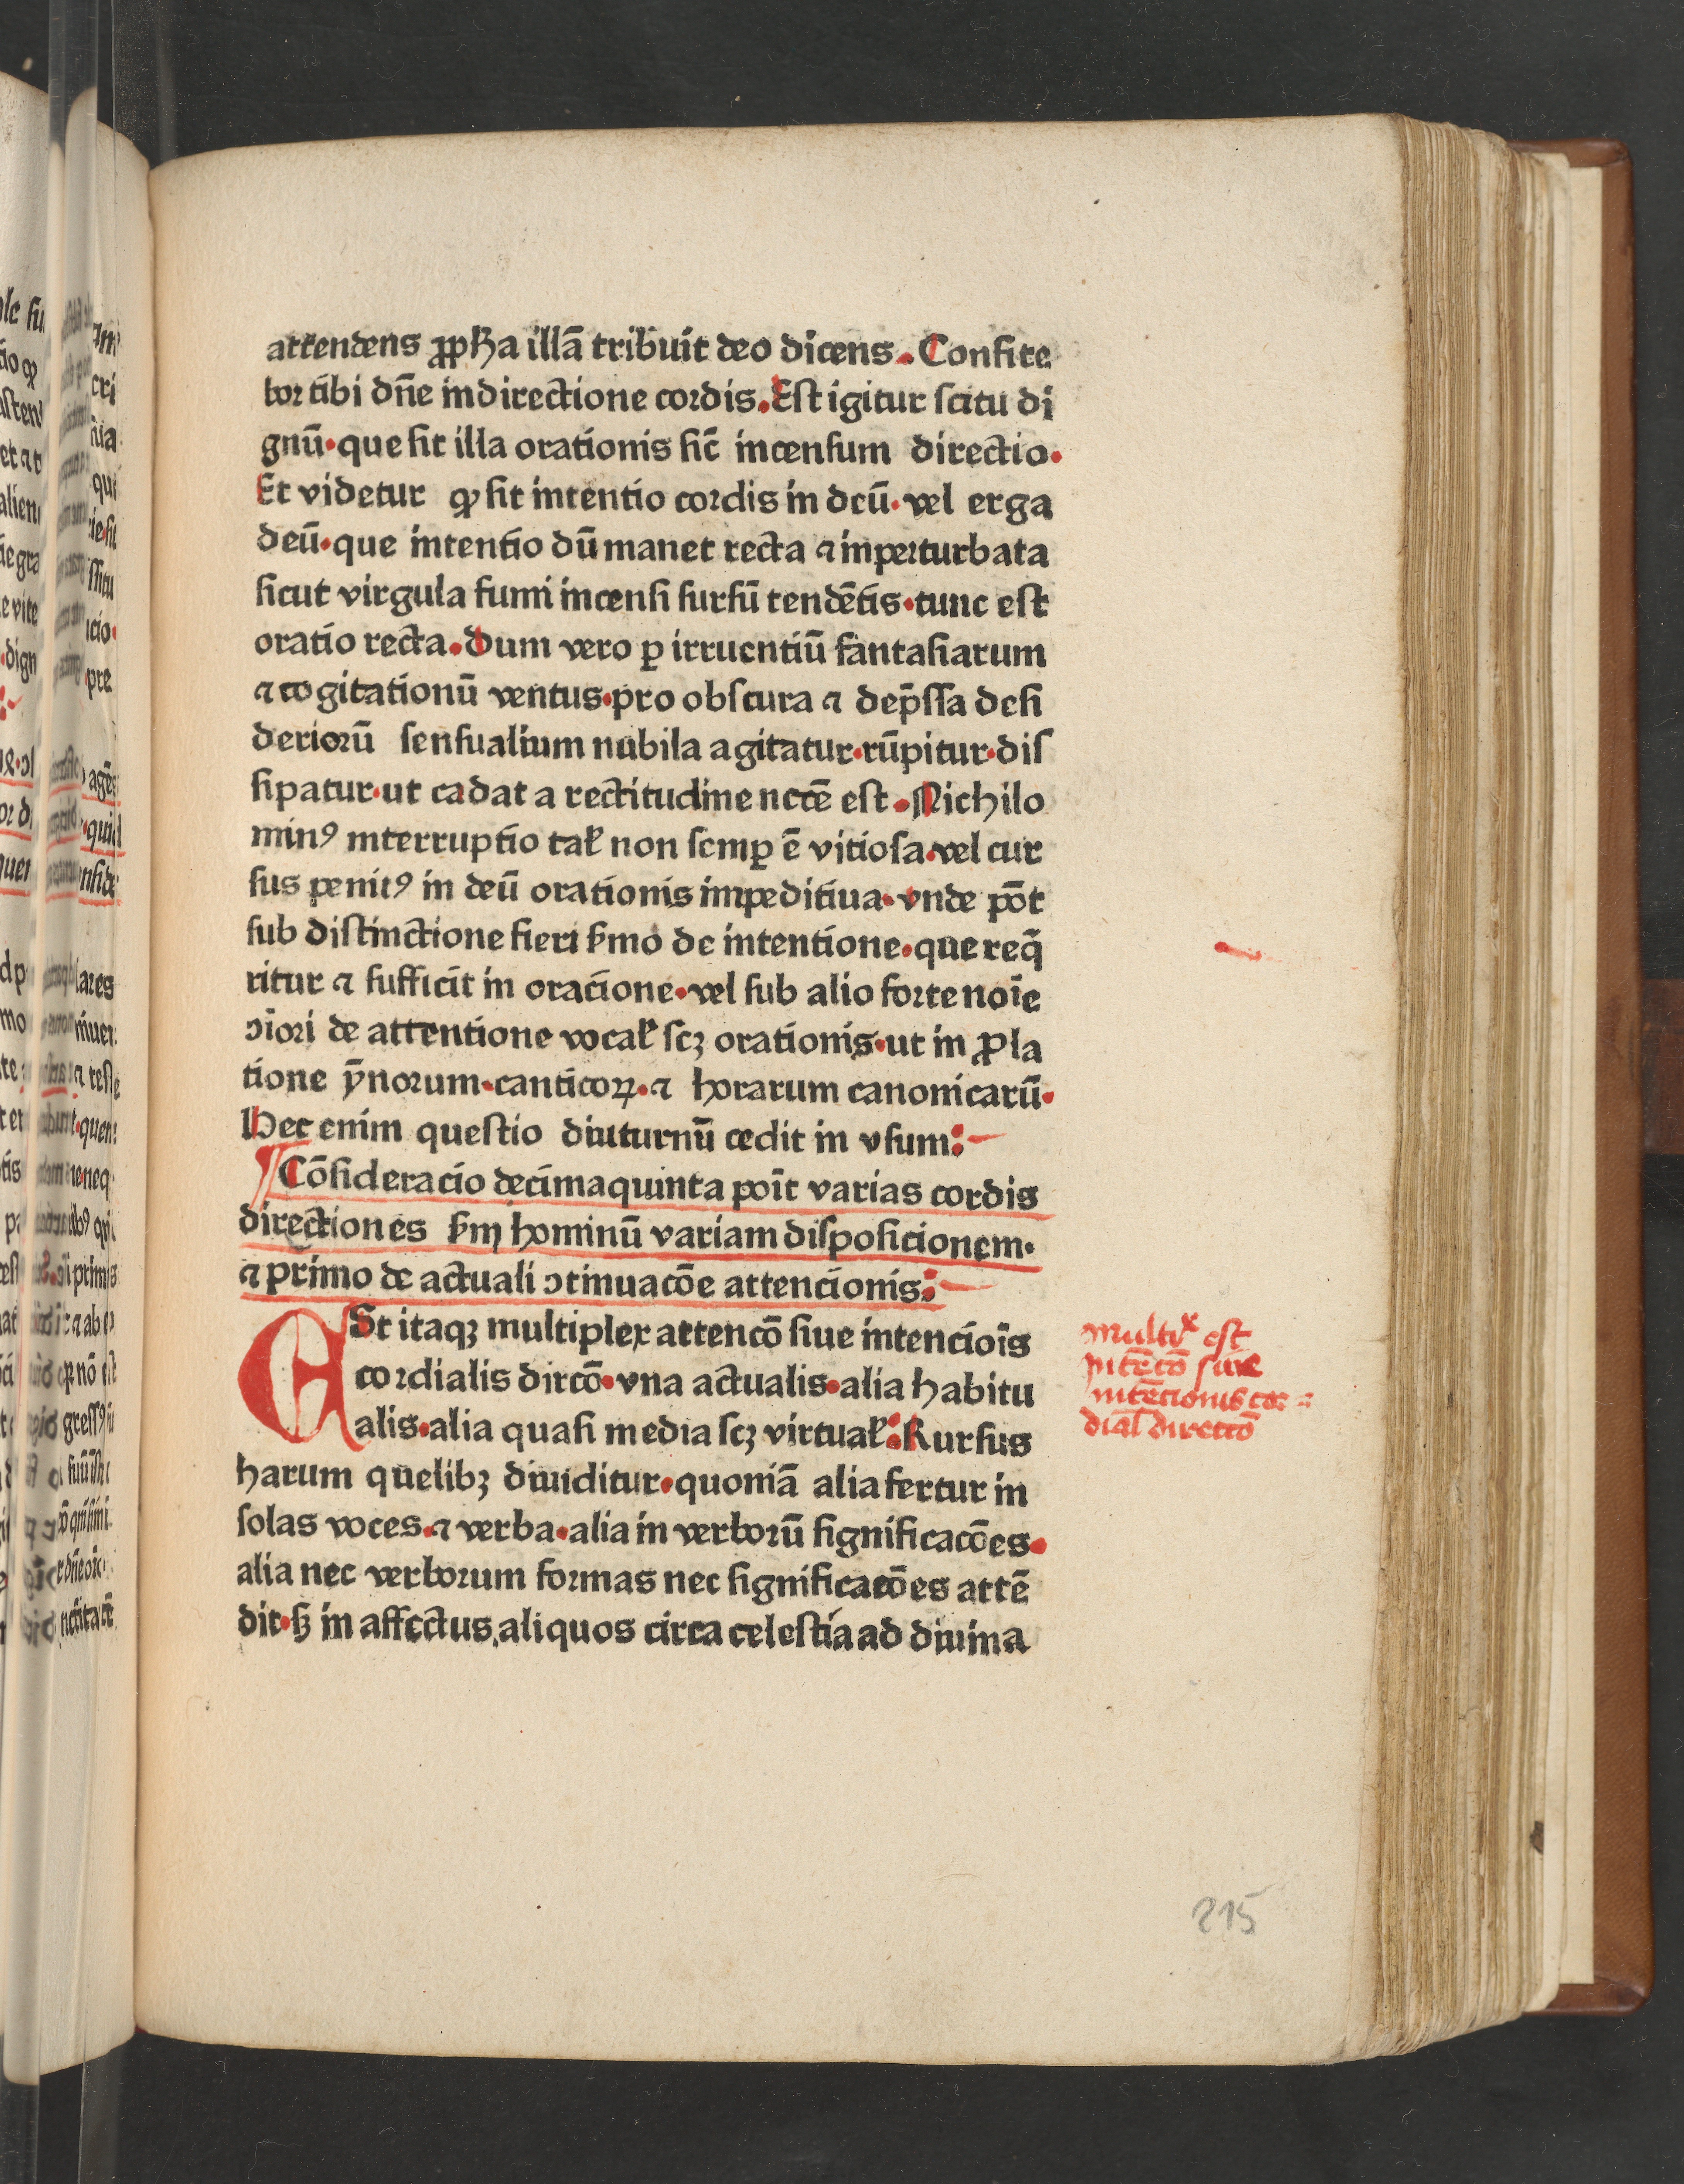 attendens ꝓpħa illā tribuit deo dicens. Confite
bor tibi dn̄e in directione cordis. Est igitur scitu di
gnū· que sit illa orationis sic̄ incensum directio·
Et videtur ꝙ sit intentio cordis in deū· vel erga
deū· que intentio dū manet recta ⁊ inperturbata
sicut virgula fumi incensi sursū tendētis· tunc est
oratio recta. dum vero ꝑ irruentiū fantasiarum
⁊ cogitationū ventus· pro obscura ⁊ dep̄ssa desi
deriorū sensualium nubila agitatur· rūpitur· dis
sipatur· ut cadat a rectitudine nctē est. Nichilo
minꝰ interruptio tal̉ non semꝑ ē vitiosa· vel cur
sus penitꝰ in deū orationis impeditiua· vnde pōt
sub distinctione fieri ẜmo de intentione· que req̄
ritur ⁊ sufficit in oracione· vel sub alio forte noīe
ↄiori de attentione vocal̉ scꝫ orationis· ut in ꝓla
tione ȳnorum· canticoꝝ· ⁊ horarum canonicarū·
Hec enim questio diuturnū cedit in vsum:
¶ Cōsideracio decimaquinta poīt varias cordis
directiones ẜm hominū variam disposicionem·
⁊ primo de actuali ↄtinuacōe attencionis:
ESt itaqꝫ multiplex attencō siue intencioīs
cordialis dircō· vna actualis· alia habitu
alis· alia quasi media scꝫ virtual̉: Rursus
harum quelibꝫ diuiditur· quoniā alia fertur in
solas voces· ⁊ verba· alia in verborū significacōes·
alia nec verborum formas nec significacōes attē
dit· ꜩ in affectus, aliquos circa celestia ad diuina
multix est
intēcō siue
intēcionis cor=
dial̄ directō
215